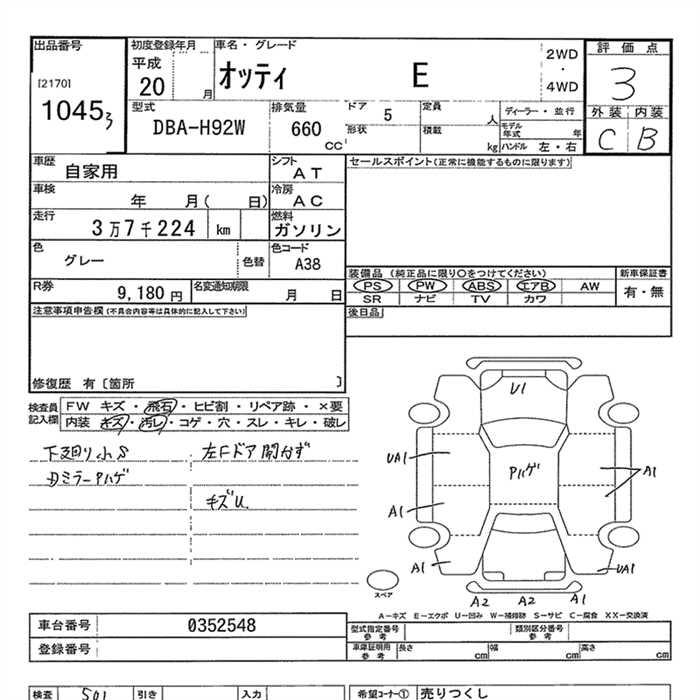 出品番号
[2170]
1045 3
初度登録年月
平成
20 月
車名・グレード
オッティ E
2WD
・
4WD
評価点
3
外装 内装
C B
型式
DBA-H92W
排気量
660
CC
ドア 5
形状
定員 人
積載 kg
ディーラー・並行
モデル年式 年
ハンドル 左・右
車歴 自家用
シフト AT
車検 年 月( 日)
冷房 AC
走行 3万7千224 km
燃料 ガソリン
色 グレー
色替
色コード A38
R券 9,180円
名変通知期限 月 日
セールスポイント(正常に機能するものに限ります)
装備品 (純正品に限り○をつけてください)
PS PW ABS エアB AW
SR ナビ TV カワ
新車保証書
有・無
後日品
注意事項申告欄(不具合内容等は具体的に記入して下さい)
修復歴 有〔箇所 〕
検査員記入欄
FW キズ・飛石・ヒビ割・リペア跡・×要
内装 キズ・汚レ・コゲ・穴・スレ・キレ・破レ
下廻り小S
左Fドア開かず
Dミラーハゲ
キズU
U1
UA1
Pハゲ
A1
A1
A1
UA1
A2 A2 A1
スペア
A－キズ E－エクボ U－凹み W－補修跡 S－サビ C－腐食 XX－交換済
車台番号 0352548
登録番号
型式指定番号 参考
類別区分番号 参考
車庫証明用 参考
長さ cm
幅 cm
高さ cm
検査 501
引き
入力
希望コーナー① 売りつくし